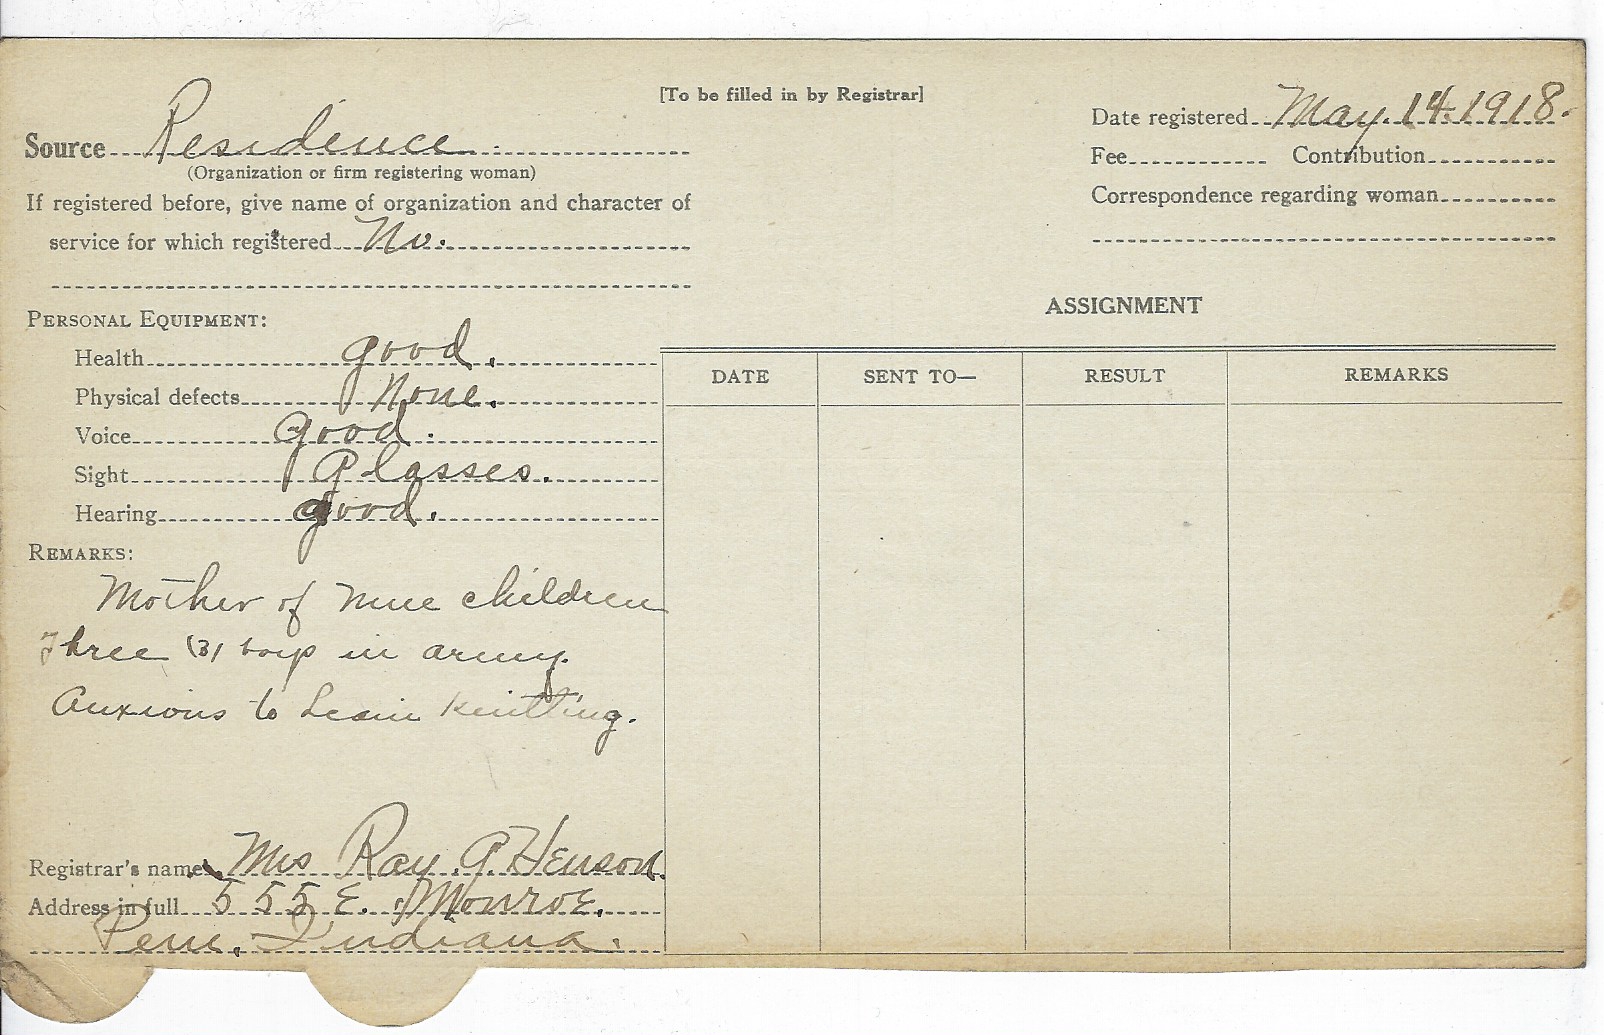 [To be filled in by Registrar]
Source Residence
(Organization or firm registering woman)
If registered before, give name of organization and character of
service for which registered No.
Date registered May. 14. 1918.
Fee Contribution
Correspondence regarding woman
PERSONAL EQUIPMENT:
Health good.
Physical defects None.
Voice Good.
Sight Glasses.
Hearing good.
REMARKS:
Mother of nine children
Three (3) boys in army.
Anxious to Learn Knitting.
Registrar's name Mrs Ray G. Henson.
Address in full 555 E. Monroe.
Peru, Indiana.
ASSIGNMENT
DATE SENT TO— RESULT REMARKS